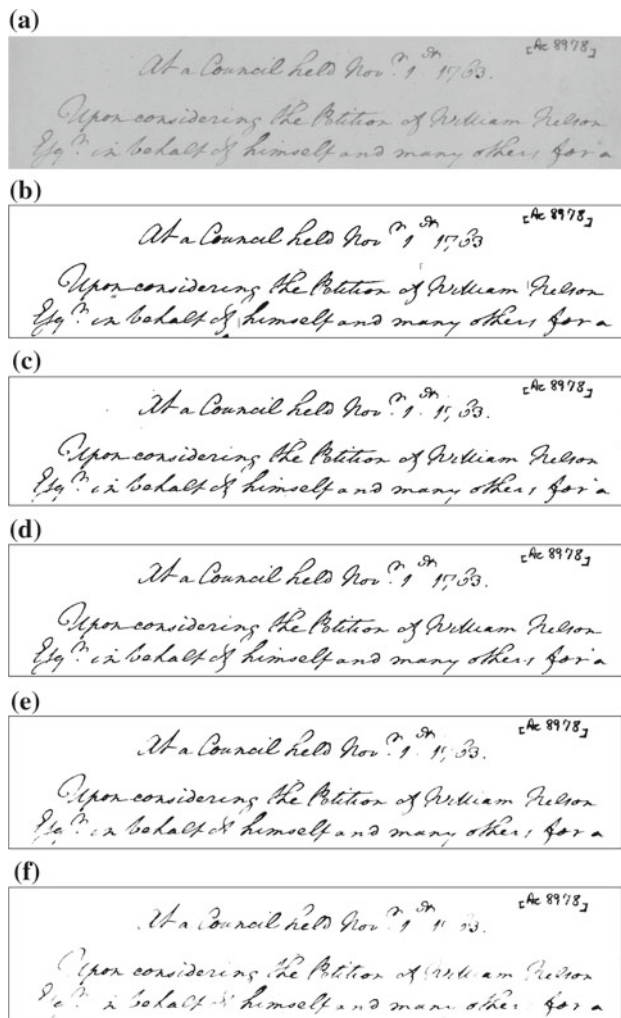 (a)
[Ac 8978]
At a Council held Novr. 1st 1763.
Upon considering the Petition of William Nelson
Esqr. in behalf of himself and many others for a
(b)
[Ac 8978]
At a Council held Novr 1st 1763
Upon considering the Petition of William Nelson
Esqr. in behalf of himself and many others for a
(c)
[Ac 8978]
At a Council held Novr. 1st 1763.
Upon considering the Petition of William Nelson
Esqr. in behalf of himself and many others for a
(d)
[Ac 8978]
At a Council held Novr. 1st 1763.
Upon considering the Petition of William Nelson
Esqr. in behalf of himself and many others for a
(e)
[Ac 8978]
At a Council held Novr. 1st 1763.
Upon considering the Petition of William Nelson
Esqr. in behalf of himself and many others for a
(f)
[Ac 8978]
At a Council held Novr. 1st 1763.
Upon considering the Petition of William Nelson
Esqr. in behalf of himself and many others for a